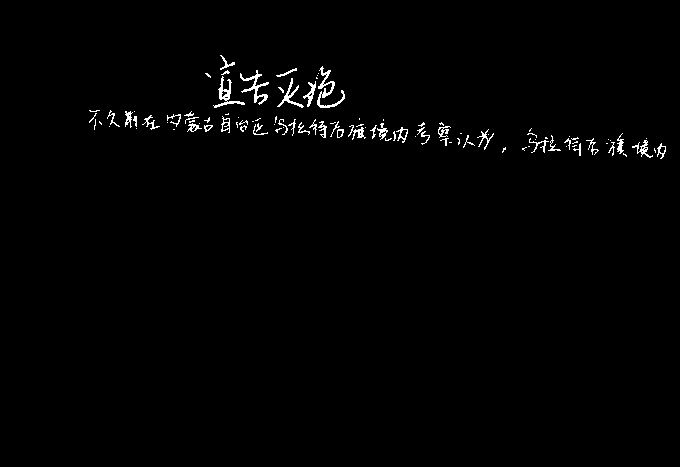 宣告灭绝
不久前在内蒙古自治区乌拉特后旗境内考察认为，乌拉特后旗境内